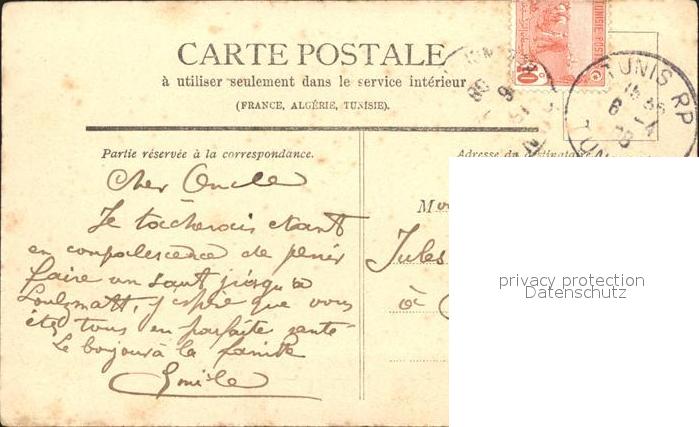 CARTE POSTALE
à utiliser seulement dans le service intérieur
(FRANCE, ALGÉRIE, TUNISIE).
TUNISIE POSTES
10 c
TUNIS RP
15 35
6 - 4
Partie réservée à la correspondance.
Adresse du destinataire
Cher Oncle
Je tâcherais etant
en convalescence de
faire un saut jusqu'a
Soulzmatt, j'espère que vous
êtes tous en parfaite santé
Le bonjour à la famille
Emile
Jules
à
privacy protection
Datenschutz